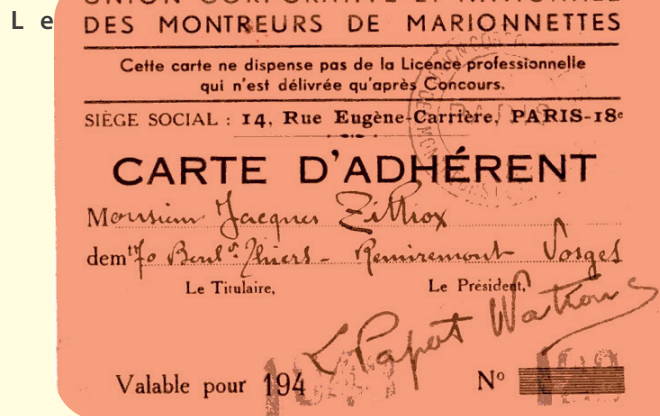 Le
UNION CORPORATIVE ET NATIONALE
DES MONTREURS DE MARIONNETTES
Cette carte ne dispense pas de la Licence professionnelle
qui n'est délivrée qu'après Concours.
SIÈGE SOCIAL : 14, Rue Eugène-Carrière, PARIS-18e
CARTE D'ADHÉRENT
Monsieur Jacques Zilliox
demt Boul. Thiers - Remiremont Vosges
Le Titulaire, Le Président,
Valable pour 194
No